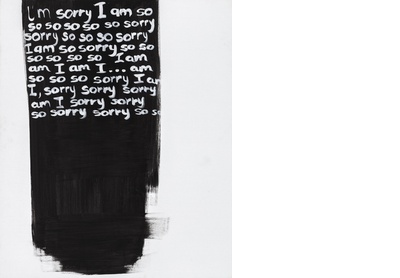 I'm sorry I am so
so so so so so sorry
sorry so so so sorry
I am so sorry so so
so so so so I am
am I am I... am
so so so sorry I am
I, sorry sorry sorry
am I sorry sorry
so sorry sorry so so